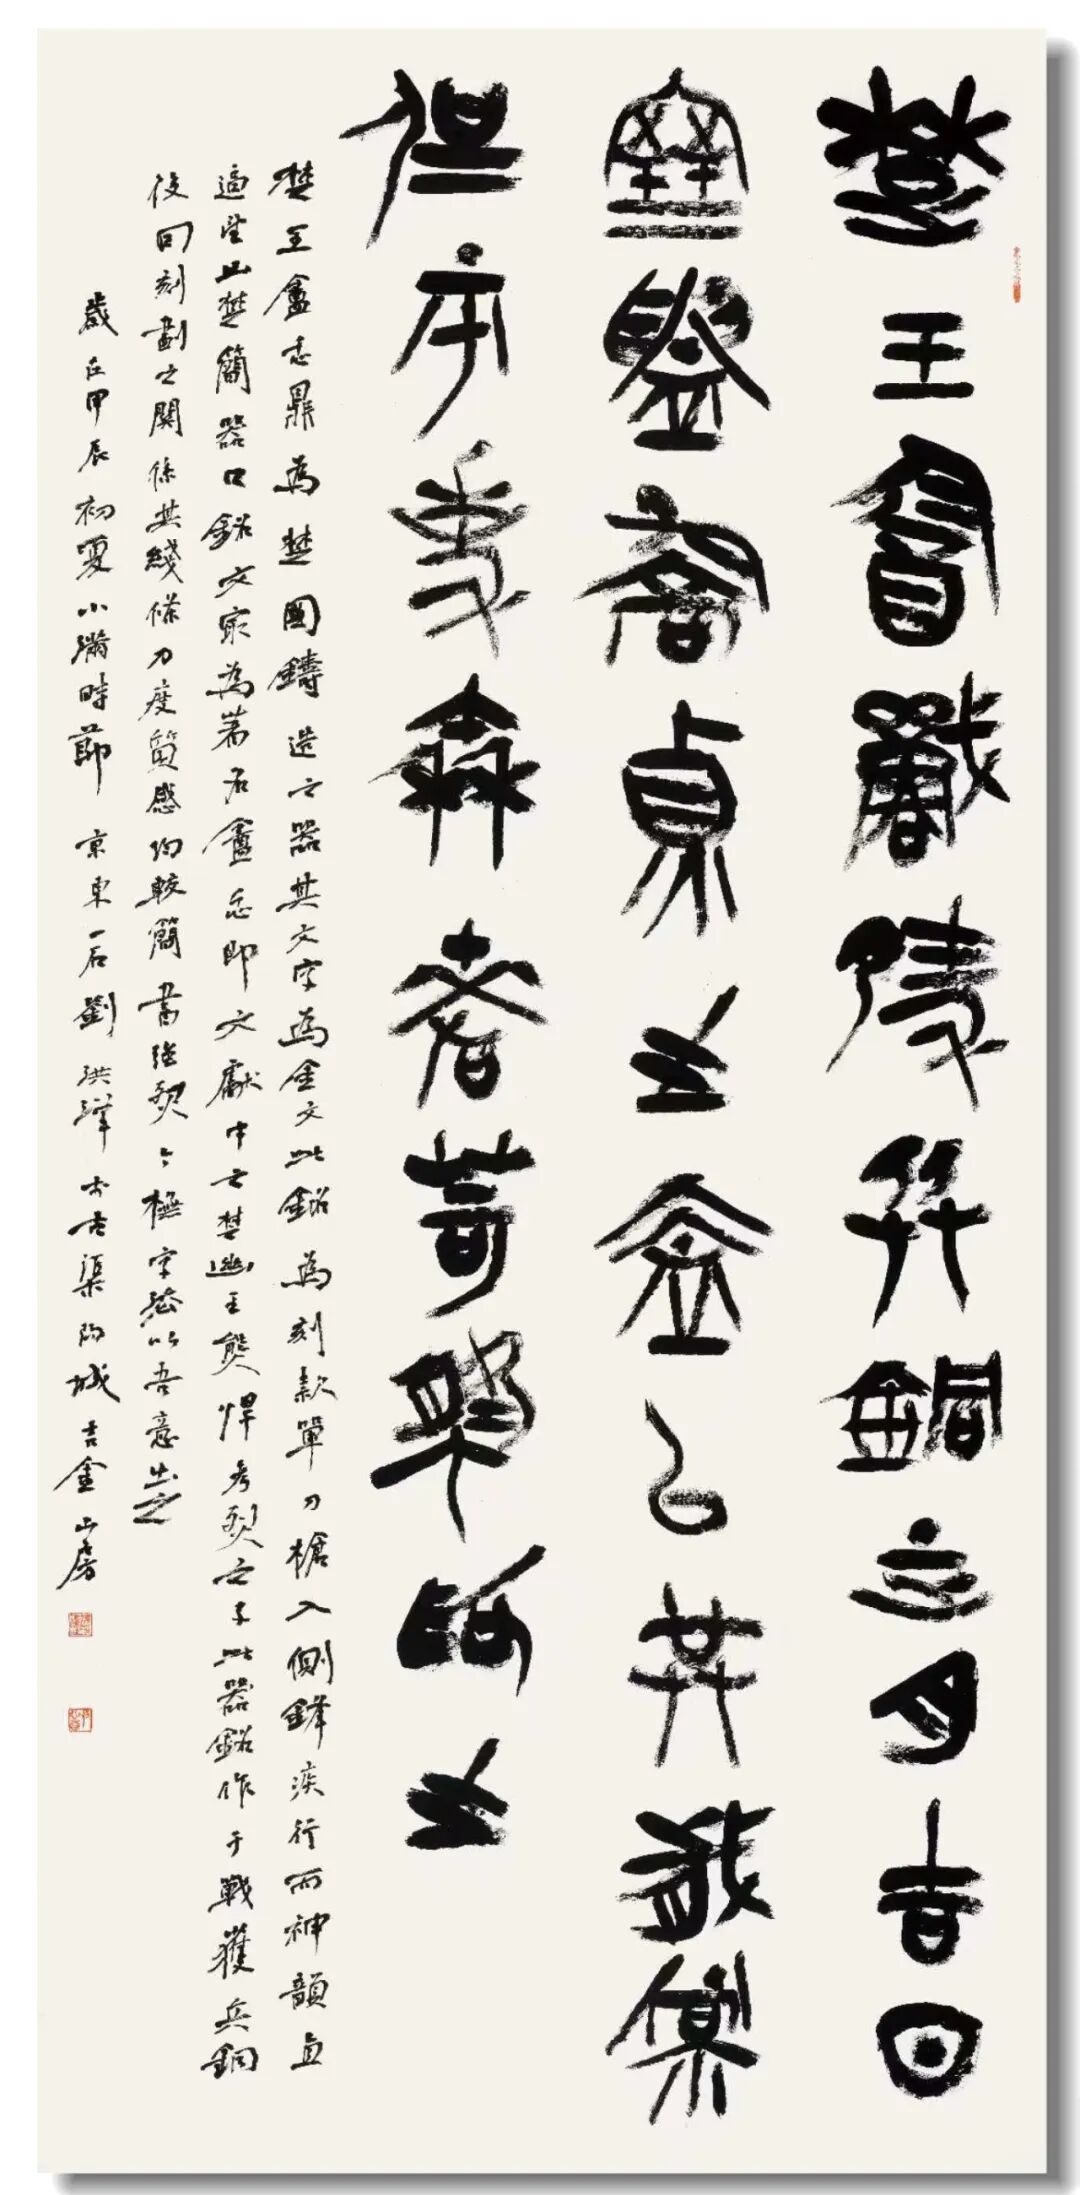 楚王酓戰隻兵銅正月吉日
窒鑄喬鼎之盍以共歲棠
但帀吏秦差苟為之
楚王酓忎鼎為楚國鑄造之器其文字為金文此銘為刻款單刀槍入側鋒疾行而神韻直
逼望山楚簡器口銘文最為著名酓忎即文獻中之楚幽王熊悍考烈之子此器銘作于戰獲兵銅
後因刻劃之關係其綫條力度質感均較簡書強烈今橅字法以吾意出之
歲在甲辰初夏小滿時節京東一石劉洪洋於古渠陽城吉金山房